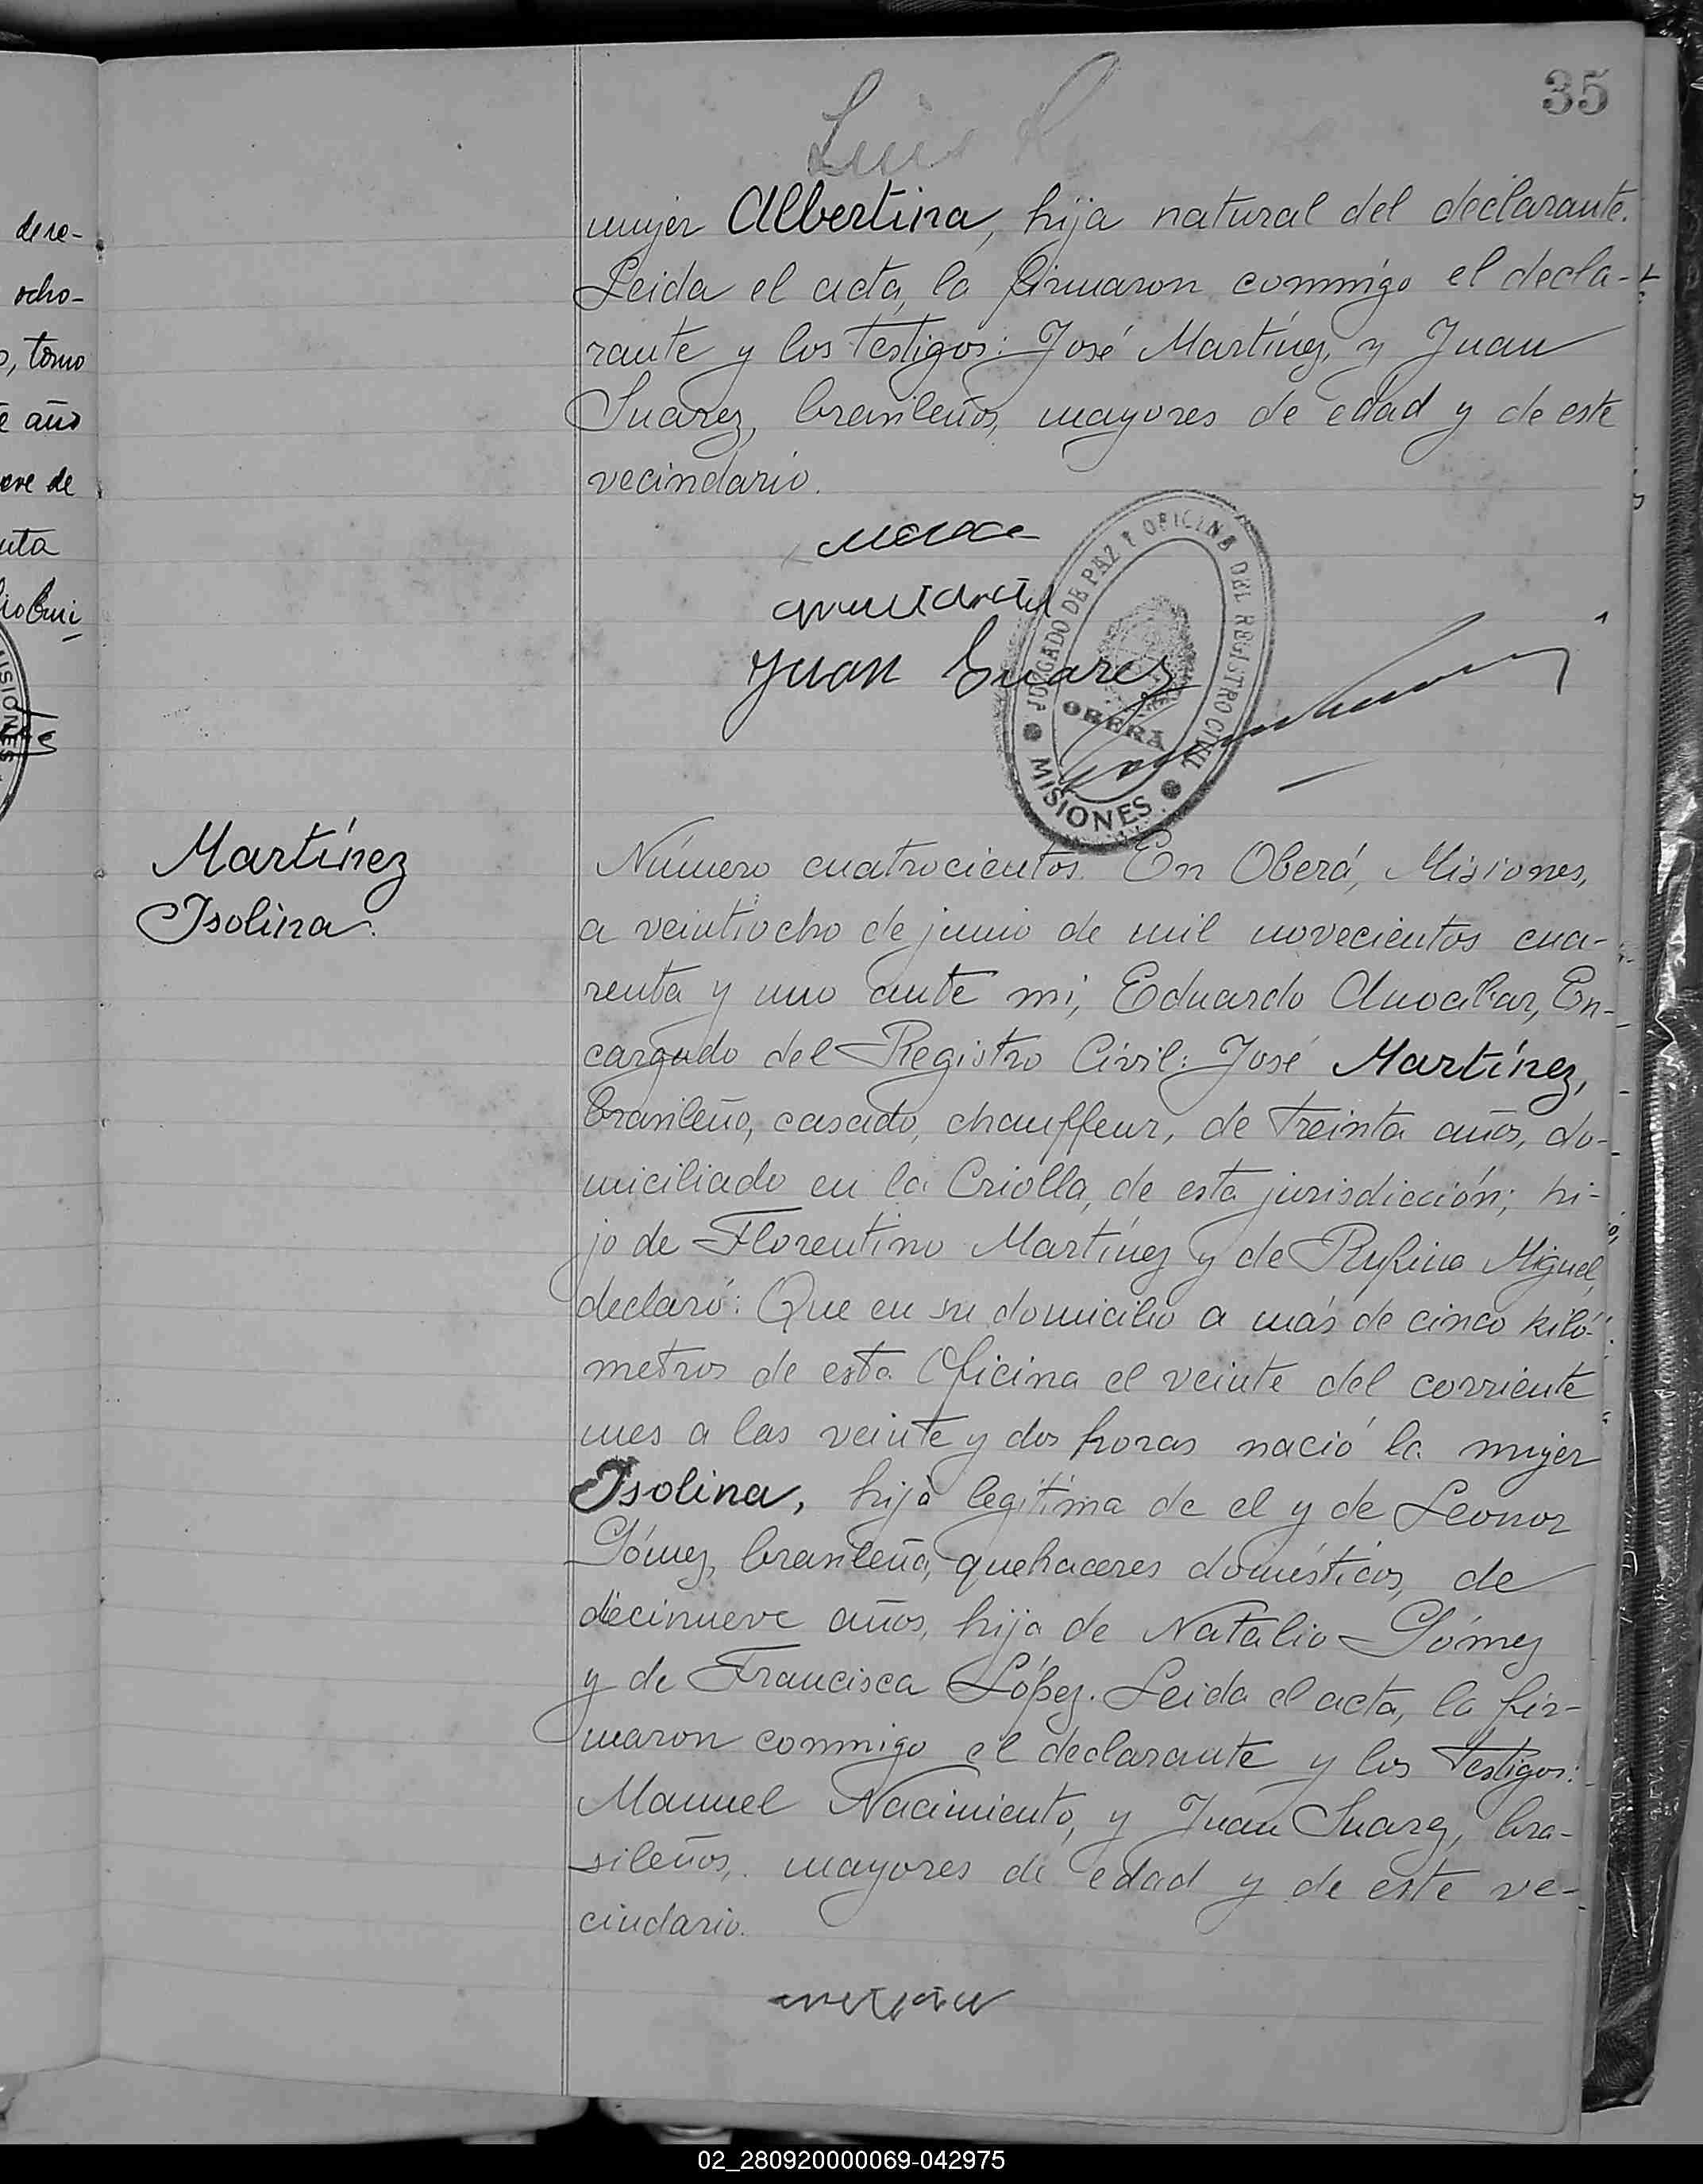 35
Luis
dere-
ocho-
tomo
e año
eve de
mujer Albertina, hija natural del declarante.
Leida el acta, la firmaron conmigo el decla-
rante y los testigos: José Martínez, y Juan
Suarez, brasileños, mayores de edad y de este
vecindario.
Juan Suarez
JUZGADO DE PAZ Y OFICINA DEL REGISTRO CIVIL
OBERÁ
MISIONES
Martínez
Isolina.
Número cuatrocientos. En Oberá, Misiones,
a veintiocho de junio de mil novecientos cua-
renta y uno ante mi, Eduardo Anocibar, En-
cargado del Registro Civil: José Martínez,
brasileño, casado, chauffeur, de treinta años, do-
miciliado en la Criolla, de esta jurisdicción; hi-
jo de Florentino Martínez y de Rufina Miguel,
declaró: Que en su domicilio a más de cinco kiló-
metros de esta Oficina el veinte del corriente
mes a las veinte y dos horas nació la mujer
Isolina, hija legítima de el y de Leonor
Gómez, brasileña, quehaceres domésticos, de
diecinueve años, hija de Natalio Gómez
y de Francisca López. Leida el acta, la fir-
maron conmigo el declarante y los testigos:
Manuel Nacimiento, y Juan Suarez, bra-
sileños, mayores de edad y de este ve-
cindario.
02_280920000069-042975